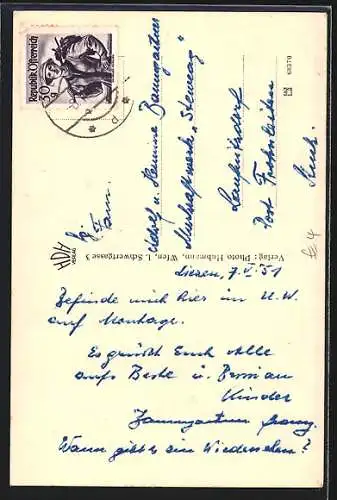 Republik Österreich
30 g
Fa.
Josef u. Hermine Baumgartner
Murkraftwerk „Steweag"
Laufnitzdorf
Post Frohnleiten
Stmk.
BLUZES
HDH
VERLAG
Verlag: Photo Hubmann, Wien, I. Schwertgasse 3
Liezen, 7.V.51
Befinde mich hier im U.W.
auf Montage.
Es grüsst Euch Alle
aufs Beste u.
Kinder
Baumgartner Franz
Wann gibt es ein Wiedersehen?